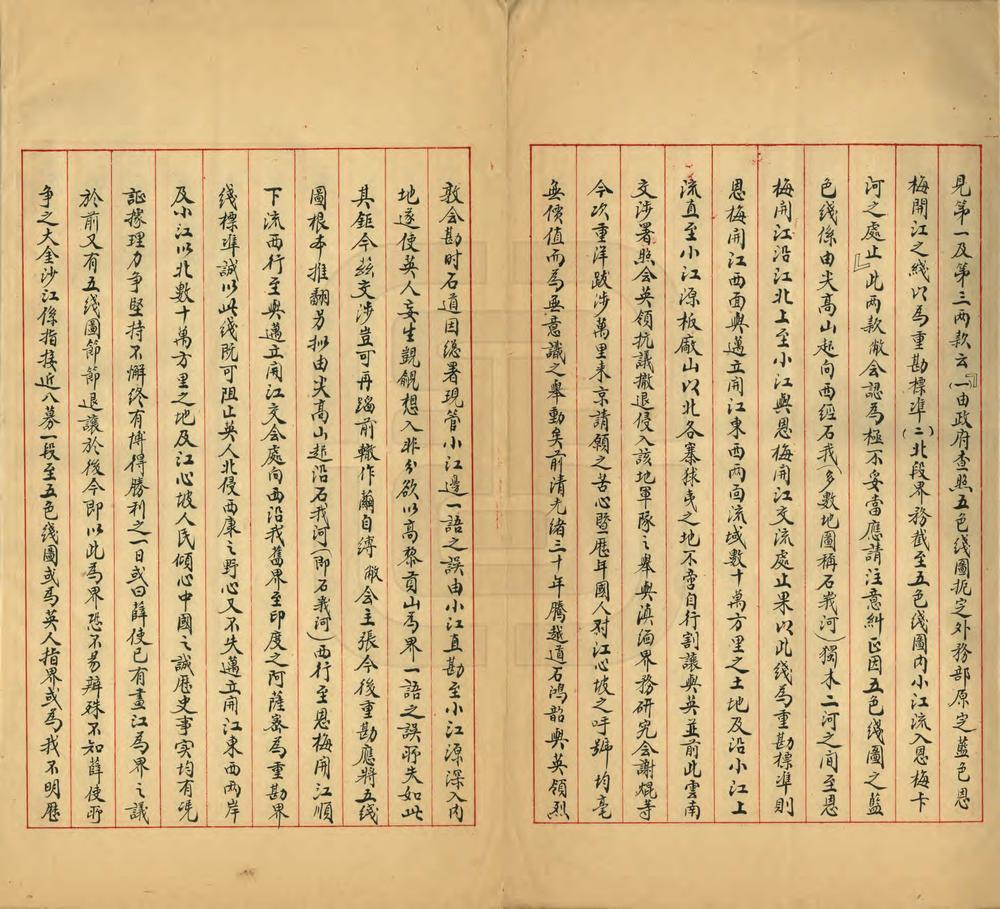 見第一及第三兩款云『(一)由政府查照五色綫圖扼定外務部原定藍色恩
梅開江之綫以為重勘標準(二)北段界務截至五色綫圖內小江流入恩梅卡
河之處止』此兩款敝會認為極不妥當應請注意糾正因五色綫圖之藍
色綫係由尖高山起向西經石我(多數地圖稱石峩河)獨木二河之间至恩
梅開江沿江北上至小江與恩梅開江交流處止果以此綫為重勘標準則
恩梅開江西面與邁立開江東西兩面流域數十萬方里之土地及沿小江上
流直至小江源板廠山以北各寨猓夷之地不啻自行割讓與英並前此雲南
交涉署照会英領抗議撤退侵入該地軍隊之舉與滇緬界務研究会謝焜等
今次重洋跋涉萬里来京請願之苦心暨歷年國人对江心坡之呼號均毫
無價值而為無意識之舉動矣前清光緒三十年騰越道石鴻韶與英領烈
敦会勘时石道因總署現管小江邊一語之誤由小江直勘至小江源深入內
地遂使英人妄生覬覦想入非分欲以高黎貢山為界一語之誤所失如此
其鉅今茲交涉豈可再蹈前轍作繭自縛敝会主張今後重勘應將五綫
圖根本推翻另拟由尖高山起沿石我河(即石峩河)西行至恩梅開江順
下流西行至與邁立開江交会處向西沿我舊界至印度之阿薩密為重勘界
綫標準誠以此綫既可阻止英人北侵西康之野心又不失邁立開江東西兩岸
及小江以北數十萬方里之地及江心坡人民傾心中國之誠歷史事实均有凭
証據理力争堅持不懈終有博得勝利之一日或曰薛使已有畫江為界之議
於前又有五綫圖節節退讓於後今即以此為界恐不易辦殊不知薛使所
争之大金沙江係指接近八募一段至五色綫圖或為英人指界或為我不明歷